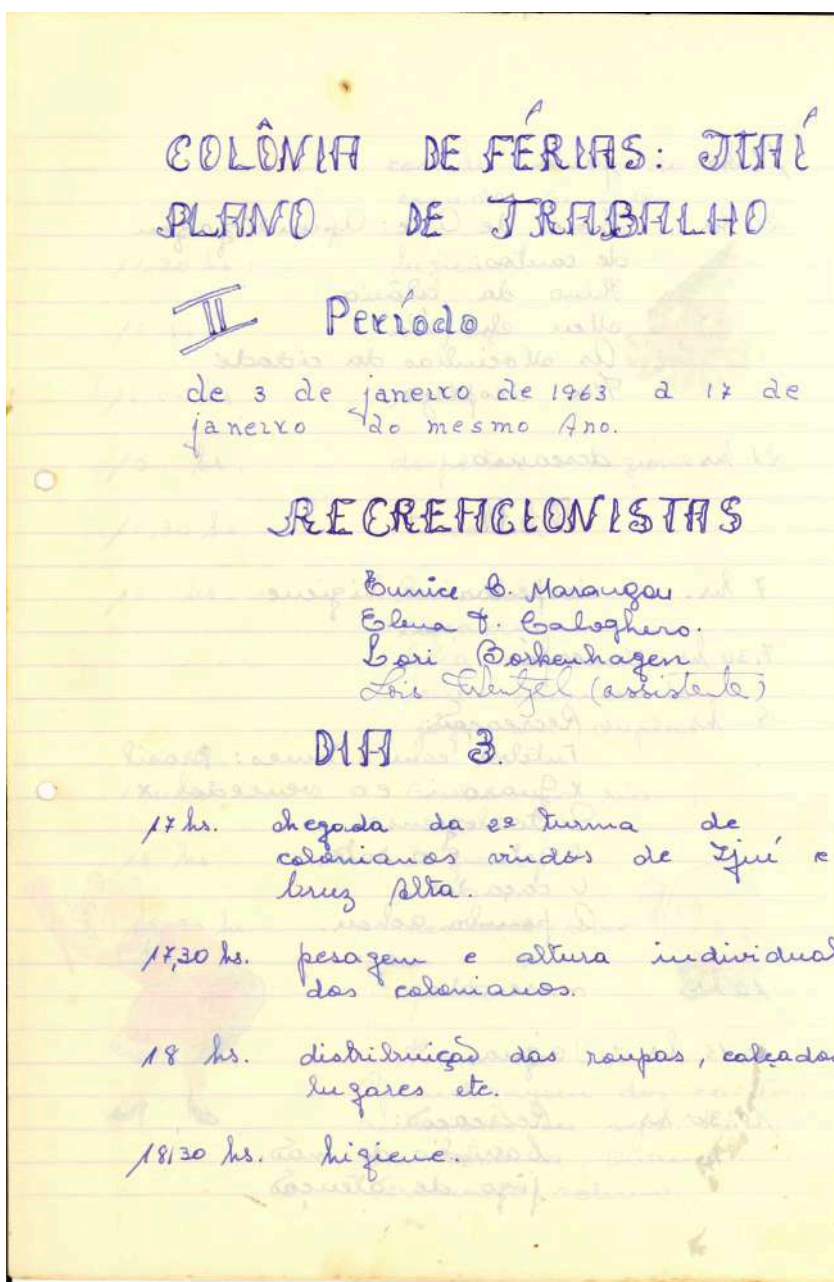 COLÔNIA DE FÉRIAS: ITAÍ
PLANO DE TRABALHO
II Período
de 3 de janeiro de 1963 a 17 de
janeiro do mesmo Ano.
RECREACIONISTAS
Eunice C. Marangon
Elena T. Caloghero.
Lori Borkenhagen
Lois Wentzel (assistente)
DIA 3.
17 hs. chegada da 2ª turma de
colonianos vindos de Ijuí e
Cruz Alta.
17,30 hs. pesagem e altura individual
dos colonianos.
18 hs. distribuição das roupas, calçados
lugares etc.
18,30 hs. higiene.